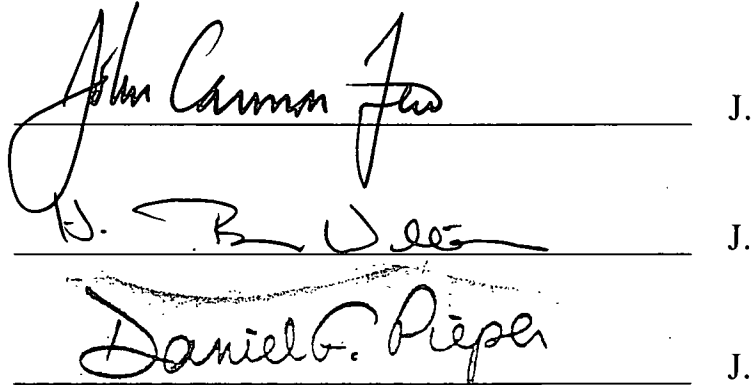 John Cannon Few J.
H. J.
Daniel F. Pieper J.